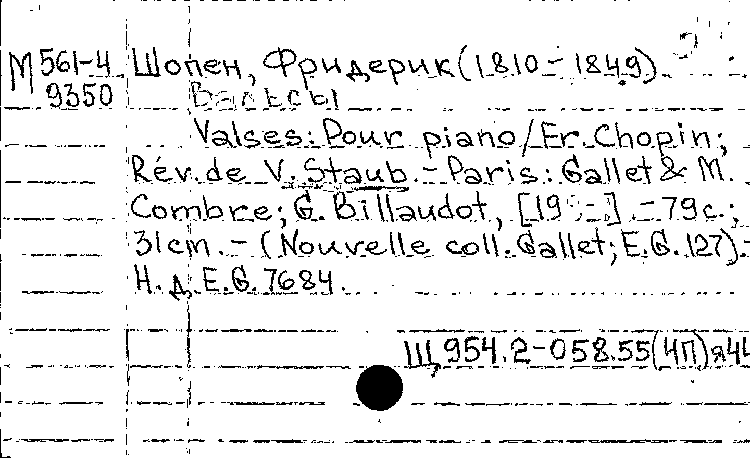 М 561-4 Шопен, Фридерик (1810-1849)
9350 Вальсы
Valses: Pour piano / Fr. Chopin;
Rév. de V. Staub. - Paris: Gallet & M.
Combre; G. Billaudot, [19 - ]. - 79 с.;
31 cm. - (Nouvelle coll. Gallet; E.G. 127). -
Н. д. E.G. 7684.
Щ 954.2-058.55(4П)я44